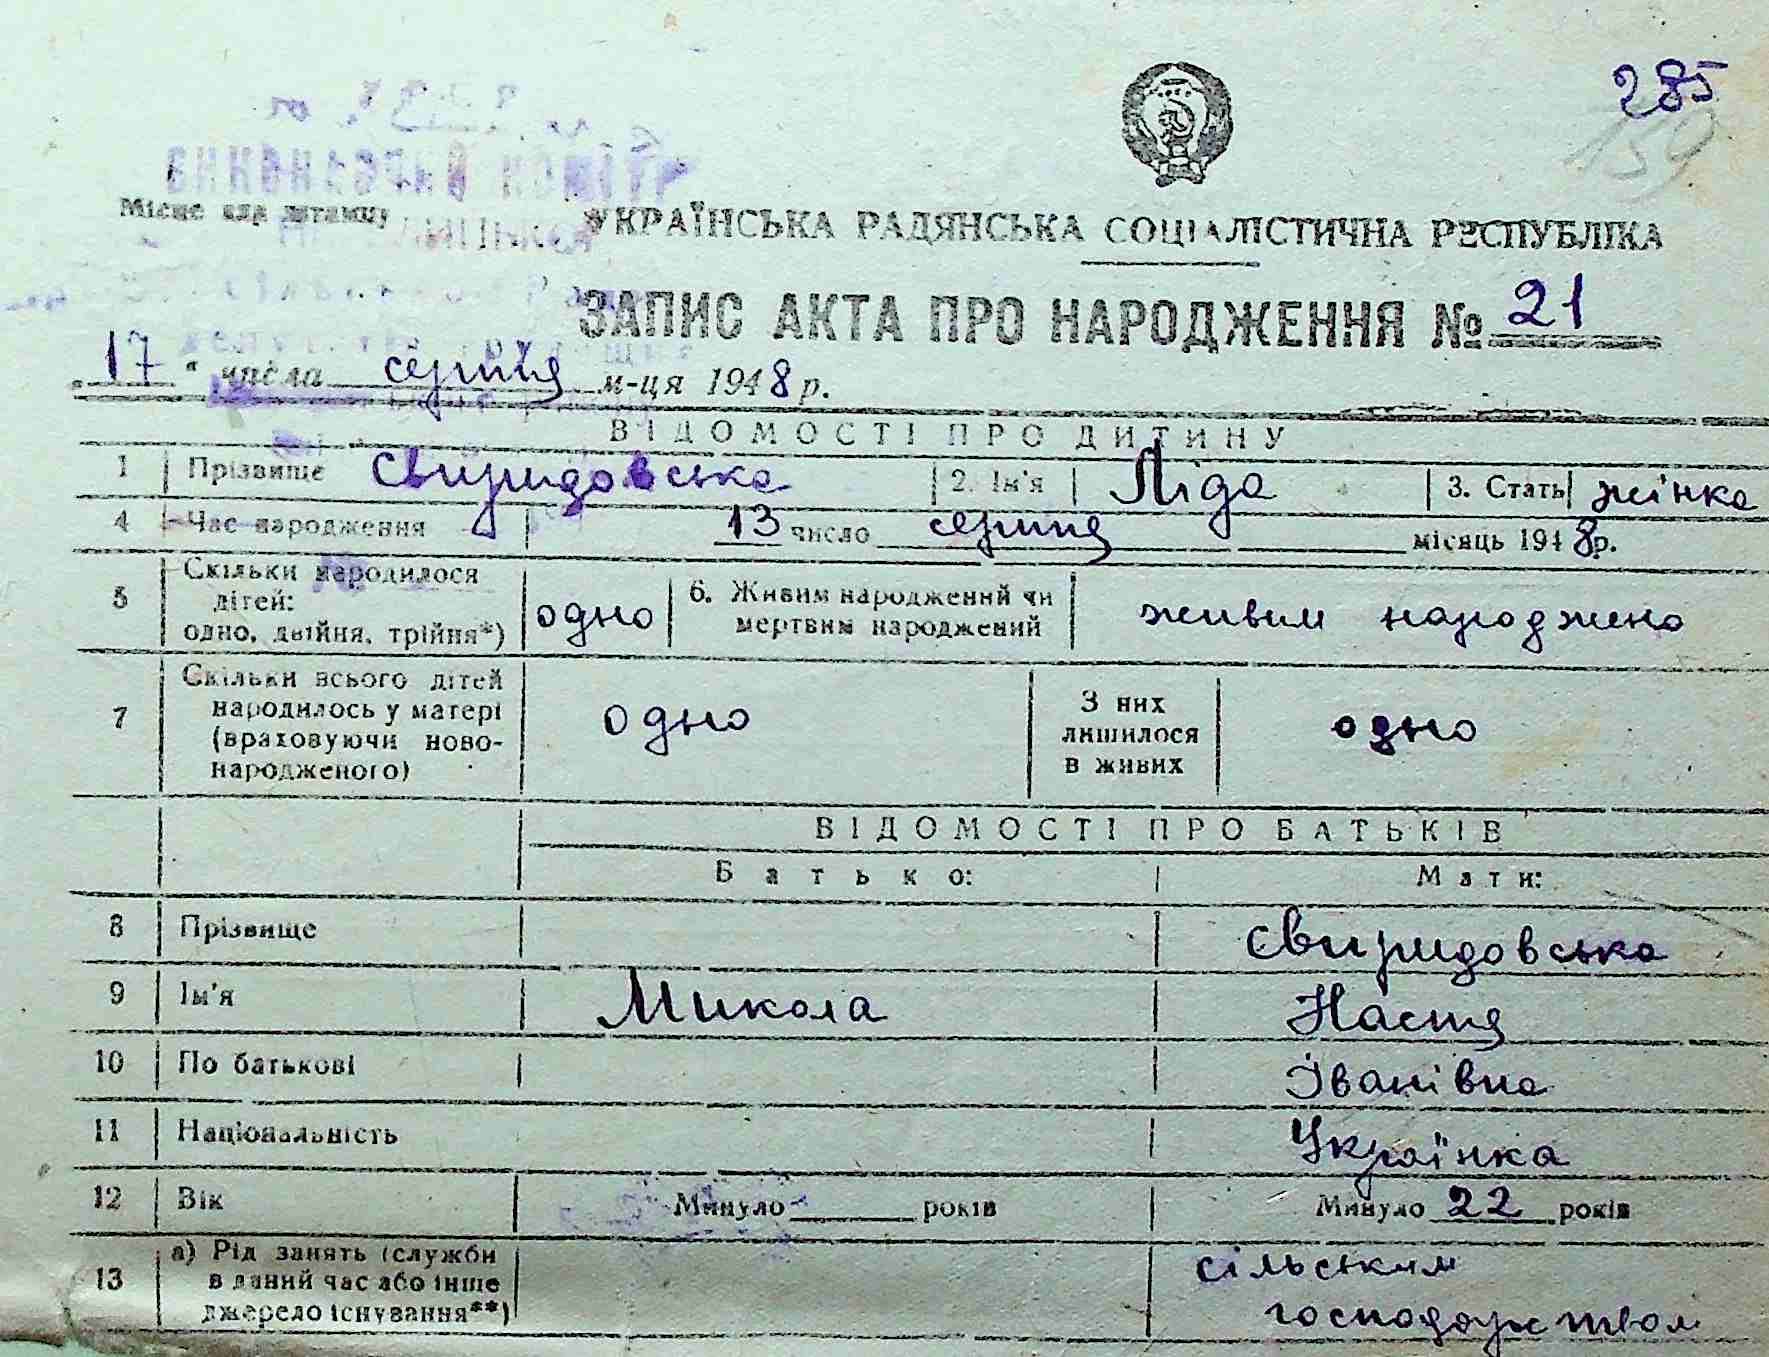 285
159
виконавчий коміт
Місце для штампу
УКРАЇНСЬКА РАДЯНСЬКА СОЦІАЛІСТИЧНА РЕСПУБЛІКА
ЗАПИС АКТА ПРО НАРОДЖЕННЯ № 21
„17“ числа серпня м-ця 1948 р.
ВІДОМОСТІ ПРО ДИТИНУ
1 Прізвище Свиридовська 2. Ім'я Ліда 3. Стать жінка
4 Час народження 13 число серпня місяць 1948 р.
5 Скільки народилося дітей: одно, двійня, трійня*) одно 6. Живим народжений чи мертвим народжений живим народжено
7 Скільки всього дітей народилось у матері (враховуючи ново-народженого) одно З них лишилося в живих одно
ВІДОМОСТІ ПРО БАТЬКІВ
Батько: Мати:
8 Прізвище Свиридовська
9 Ім'я Микола Настя
10 По батькові Іванівна
11 Національність Українка
12 Вік Минуло років Минуло 22 років
13 а) Рід занять (служби в даний час або інше джерело існування**) сільським господарством